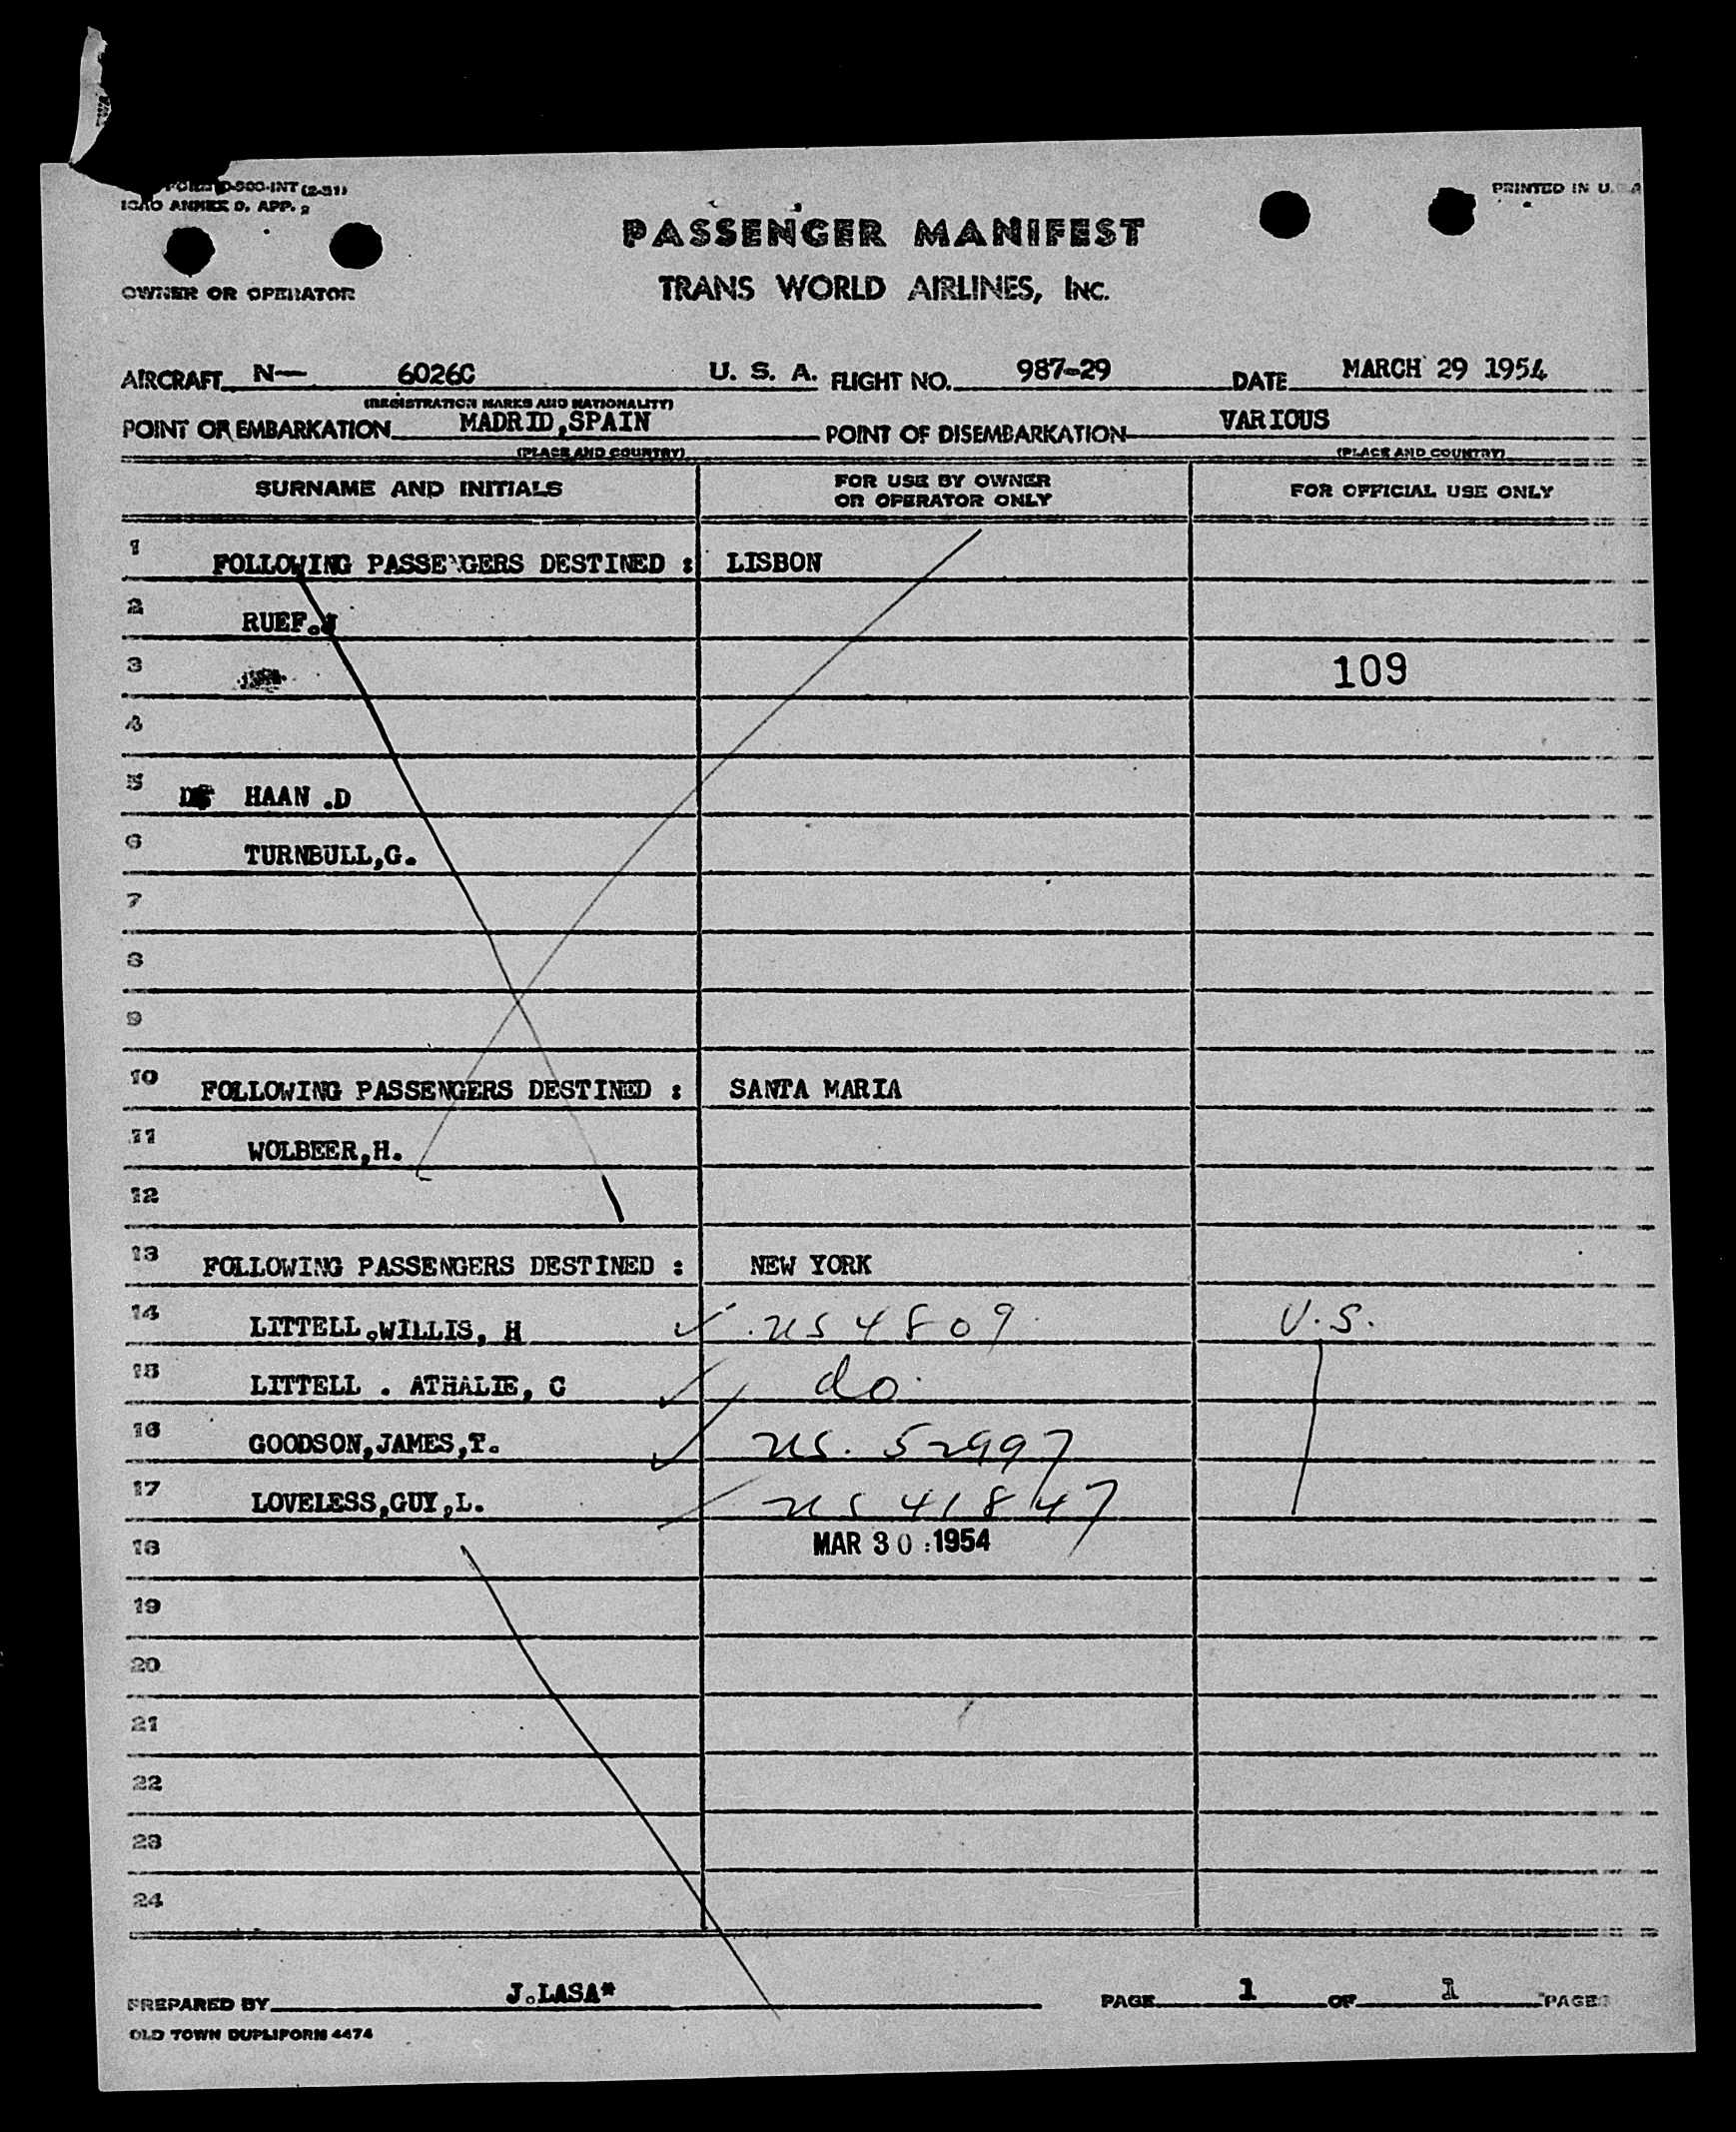 FORM O-900-INT (2-51)
ICAO ANNEX 9, APP. 2
PRINTED IN U.S.A
PASSENGER MANIFEST
OWNER OR OPERATOR
TRANS WORLD AIRLINES, INC.
AIRCRAFT N— 6026C U. S. A. FLIGHT NO. 987-29 DATE MARCH 29 1954
(REGISTRATION MARKS AND NATIONALITY)
POINT OF EMBARKATION MADRID,SPAIN POINT OF DISEMBARKATION VARIOUS
(PLACE AND COUNTRY) (PLACE AND COUNTRY)
SURNAME AND INITIALS FOR USE BY OWNER OR OPERATOR ONLY FOR OFFICIAL USE ONLY
1 FOLLOWING PASSENGERS DESTINED : LISBON
2 RUEF.J
3 109
4
5 DE HAAN .D
6 TURNBULL,G.
7
8
9
10 FOLLOWING PASSENGERS DESTINED : SANTA MARIA
11 WOLBEER,H.
12
13 FOLLOWING PASSENGERS DESTINED : NEW YORK
14 LITTELL.WILLIS, H ✓ US 4809 U.S.
15 LITTELL . ATHALIE, C ✓ do.
16 GOODSON,JAMES,T. ✓ US. 52997
17 LOVELESS,GUY,L. US 41847
18 MAR 30 1954
19
20
21
22
23
24
PREPARED BY J.LASA* PAGE 1 OF 1 PAGES
OLD TOWN DUPLIFORM 4474